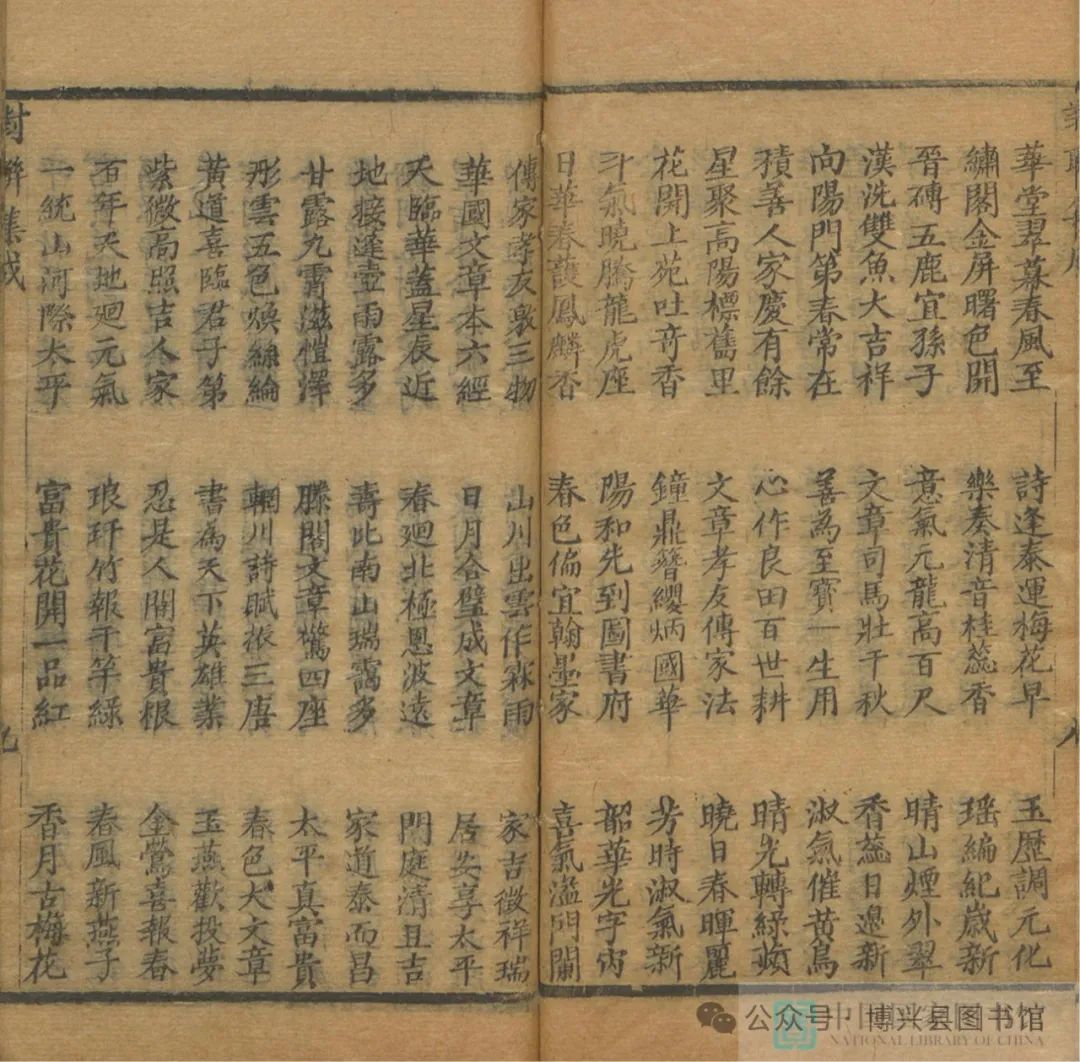 華堂翠幕春風至
繡閣金屏曙色開
晉磚五鹿宜孫子
漢洗雙魚大吉祥
向陽門第春常在
積善人家慶有餘
星聚高陽標舊里
花開上苑吐竒香
斗氣曉騰龍虎座
日華春護鳳麟香
詩逢泰運梅花早
樂奏清音桂蕊香
意氣元龍高百尺
文章司馬壯千秋
善為至寶一生用
心作良田百世耕
文章孝友傳家法
鐘鼎簪纓炳國華
陽和先到圖書府
春色偏宜翰墨家
玉歷調元化
瑶編紀歲新
晴山煙外翠
香蕊日邉新
淑氣催黄鳥
晴光轉綠蘋
曉日春暉麗
芳時淑氣新
韶華光宇宙
喜氣溢門闌
傳家孝友敦三物
華國文章本六經
天臨華蓋星辰近
地接蓬壺雨露多
甘露九霄滋愷澤
彤雲五色煥絲綸
黄道喜臨君子第
紫微高照吉人家
百年天地廻元氣
一統山河際太平
山川出雲作霖雨
日月合璧成文章
春廻北極恩波遠
壽比南山瑞靄多
滕閣文章驚四座
輞川詩賦振三唐
書為天下英雄業
忍是人間富貴根
琅玕竹報千竿綠
富貴花開一品紅
家吉徵祥瑞
居安享太平
門庭清且吉
家道泰而昌
太平真富貴
春色大文章
玉燕歡投夢
金鶯喜報春
春風新燕子
香月古梅花
對聯集成
九
公众号·博兴县图书馆
NATIONAL LIBRARY OF CHINA